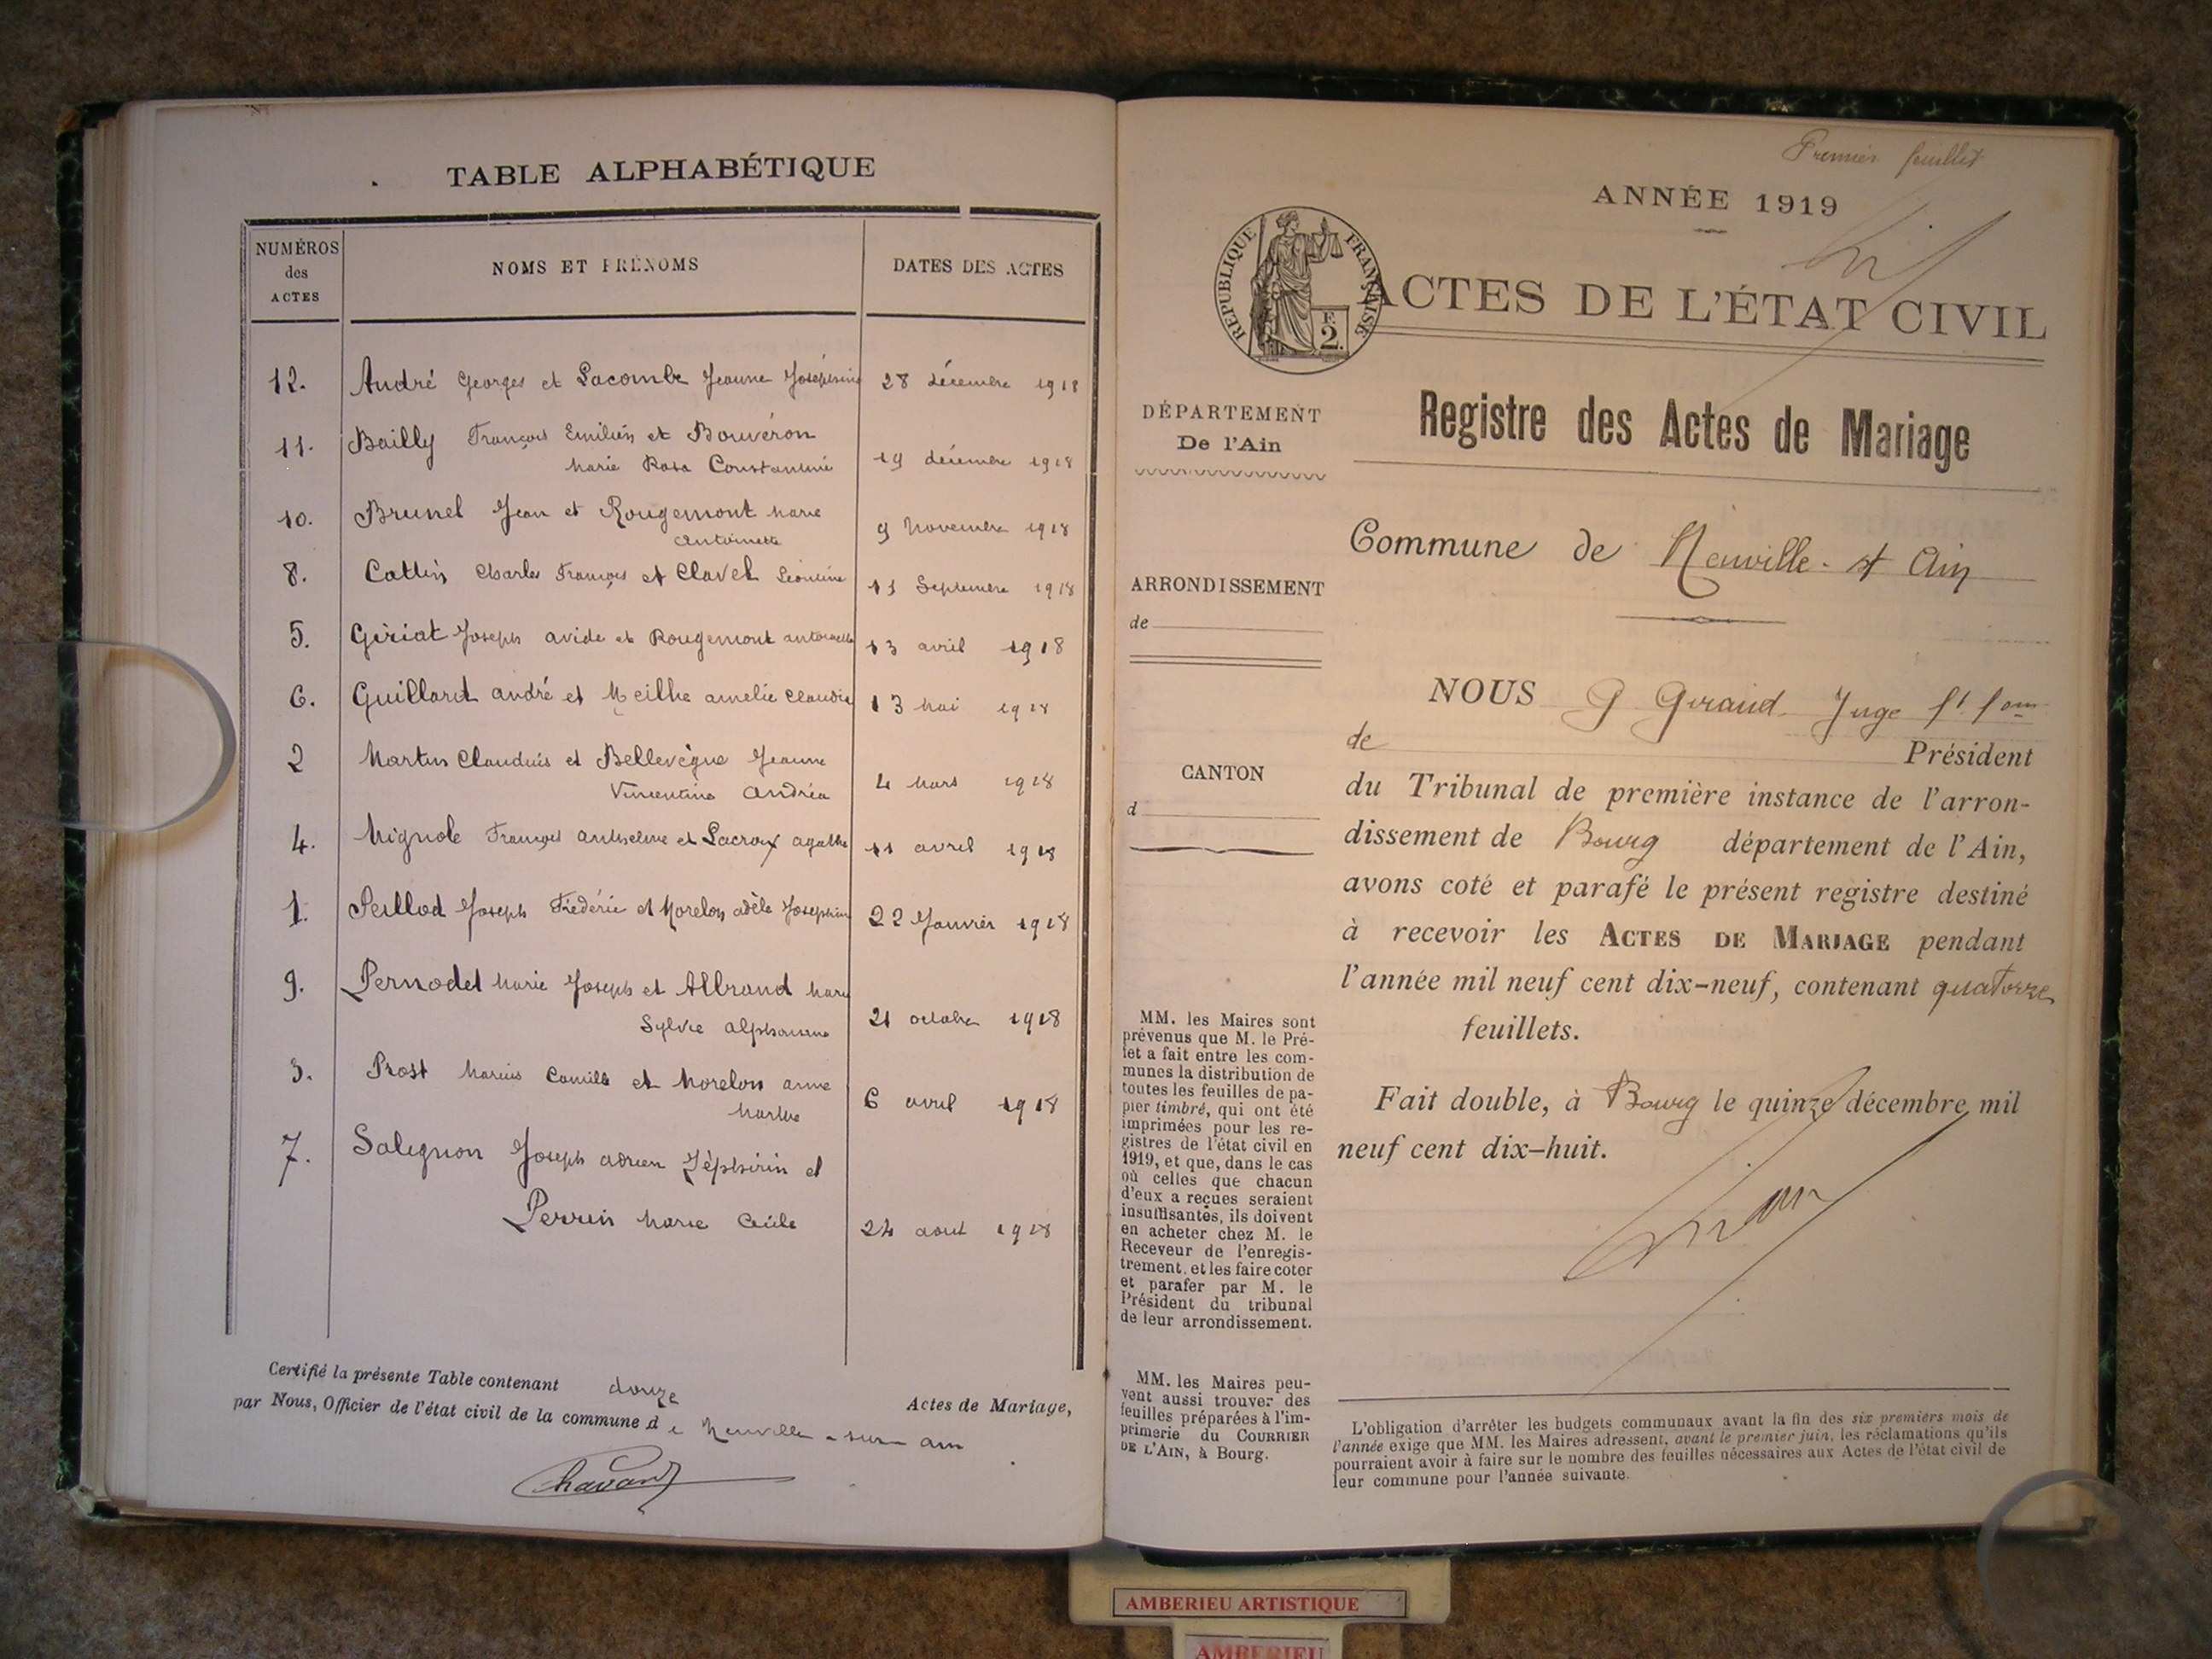 TABLE ALPHABÉTIQUE
NUMÉROS
des
ACTES
NOMS ET PRÉNOMS
DATES DES ACTES
12. André Georges et Lacombe Jeanne Joséphine 28 décembre 1918
11. Bailly François Emilien et Bouvéron
Marie Rosa Constantine 19 décembre 1918
10. Brunel Jean et Rougemont Marie
Antoinette 9 Novembre 1918
8. Cattin Charles François et Clavel Léontine 11 Septembre 1918
5. Giriat Joseph avide et Rougemont antoinette 13 avril 1918
6. Guillard andré et Meilhe amelie claudia 13 Mai 1918
2 Martin Claudius et Bellevègue Jeanne
Vincentine Andréa 4 Mars 1918
4. Mignole François anthelme et Lacroix agathe 11 avril 1918
1. Peillod Joseph Fréderic et Morelon adèle Joséphine 22 Janvier 1918
9. Pernodet Marie Joseph et Albrand Marie
Sylvie Alphonsine 21 octobre 1918
3. Prost Marius Camille et Morelon anne
Marthe 6 avril 1918
7. Salignon Joseph adrien Zéphirin et
Perrin Marie Cécile 24 aout 1918
Certifié la présente Table contenant douze Actes de Mariage,
par Nous, Officier de l'état civil de la commune de Neuville-sur-ain
Chavant
Premier feuillet
ANNÉE 1919
RÉPUBLIQUE FRANÇAISE
F.
2.
ACTES DE L'ÉTAT CIVIL
DÉPARTEMENT
De l'Ain
ARRONDISSEMENT
de
CANTON
d
Registre des Actes de Mariage
Commune de Neuville-s/ Ain
NOUS G Giraud Juge
de Président
du Tribunal de première instance de l'arron-
dissement de Bourg département de l'Ain,
avons coté et parafé le présent registre destiné
à recevoir les ACTES DE MARIAGE pendant
l'année mil neuf cent dix-neuf, contenant quatorze
feuillets.
Fait double, à Bourg le quinze décembre mil
neuf cent dix-huit.
MM. les Maires sont
prévenus que M. le Pré-
fet a fait entre les com-
munes la distribution de
toutes les feuilles de pa-
pier timbré, qui ont été
imprimées pour les re-
gistres de l'état civil en
1919, et que, dans le cas
où celles que chacun
d'eux a reçues seraient
insuffisantes, ils doivent
en acheter chez M. le
Receveur de l'enregis-
trement, et les faire coter
et parafer par M. le
Président du tribunal
de leur arrondissement.
MM. les Maires peu-
vent aussi trouver des
feuilles préparées à l'im-
primerie du COURRIER
DE L'AIN, à Bourg.
L'obligation d'arrêter les budgets communaux avant la fin des six premiers mois de
l'année exige que MM. les Maires adressent, avant le premier juin, les réclamations qu'ils
pourraient avoir à faire sur le nombre des feuilles nécessaires aux Actes de l'état civil de
leur commune pour l'année suivante.
AMBERIEU ARTISTIQUE
AMBERIEU